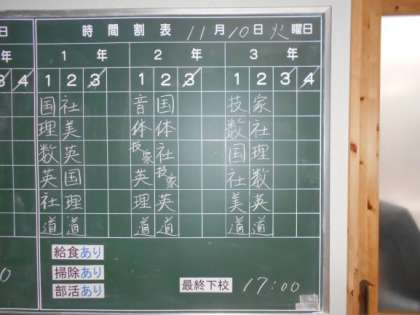 日 時間割表 11月10日火曜日
年 1年 2年 3年
3 4 1 2 3 1 2 3 1 2 3 4
国 社 音 国 技 家
理 美 体 体 数 社
数 英 技家 社 国 理
英 国 英 技家 社 数
社 理 理 英 美 英
道 道 道 道 道 道
給食あり
掃除あり
0 部活あり 最終下校 17:00